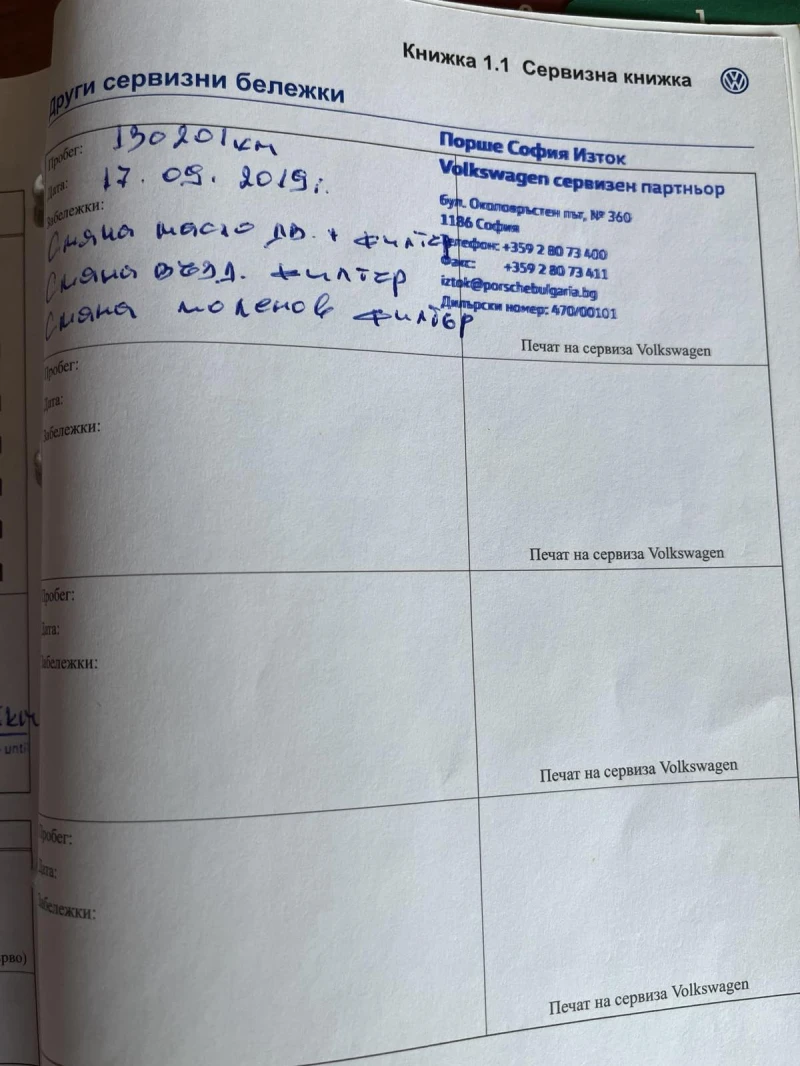 Книжка 1.1 Сервизна книжка
Други сервизни бележки
Пробег: 130201км
Дата: 17.09.2019г.
Забележки:
Смяна масло дв. + филтер
Смяна възд. филтер
Смяна поленов филтер
Порше София Изток
Volkswagen сервизен партньор
бул. Околовръстен път, № 360
1186 София
Телефон: +359 2 80 73 400
Факс: +359 2 80 73 411
iztok@porschebulgaria.bg
Дилърски номер: 470/00101
Печат на сервиза Volkswagen
Пробег:
Дата:
Забележки:
Печат на сервиза Volkswagen
Пробег:
Дата:
Забележки:
Печат на сервиза Volkswagen
Пробег:
Дата:
Забележки:
Печат на сервиза Volkswagen
until